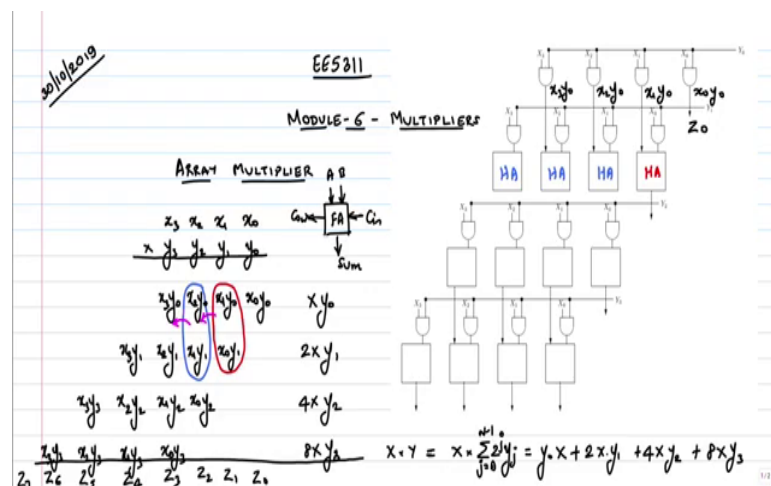 30/10/2019
EE5311
MODULE-6 - MULTIPLIERS
ARRAY MULTIPLIER
A B
Cout FA Cin
Sum
x₃ x₂ x₁ x₀
× y₃ y₂ y₁ y₀
x₃y₀ x₂y₀ x₁y₀ x₀y₀ xy₀
x₃y₁ x₂y₁ x₁y₁ x₀y₁ 2xy₁
x₃y₃ x₂y₂ x₁y₂ x₀y₂ 4xy₂
x₃y₃ x₂y₃ x₁y₃ x₀y₃ 8xy₃
Z₇ Z₆ Z₅ Z₄ Z₃ Z₂ Z₁ Z₀
X₃ X₂ X₁ X₀ Y₀
x₃y₀ x₂y₀ x₁y₀ x₀y₀
X₃ X₂ X₁ X₀ Y₁
Z₀
HA HA HA HA
X₃ X₂ X₁ X₀ Y₂
X₃ X₂ X₁ X₀ Y₃
X×Y = X × Σ 2ʲyⱼ = y₀X + 2X·y₁ + 4Xy₂ + 8Xy₃
N-1
j=0
1/2